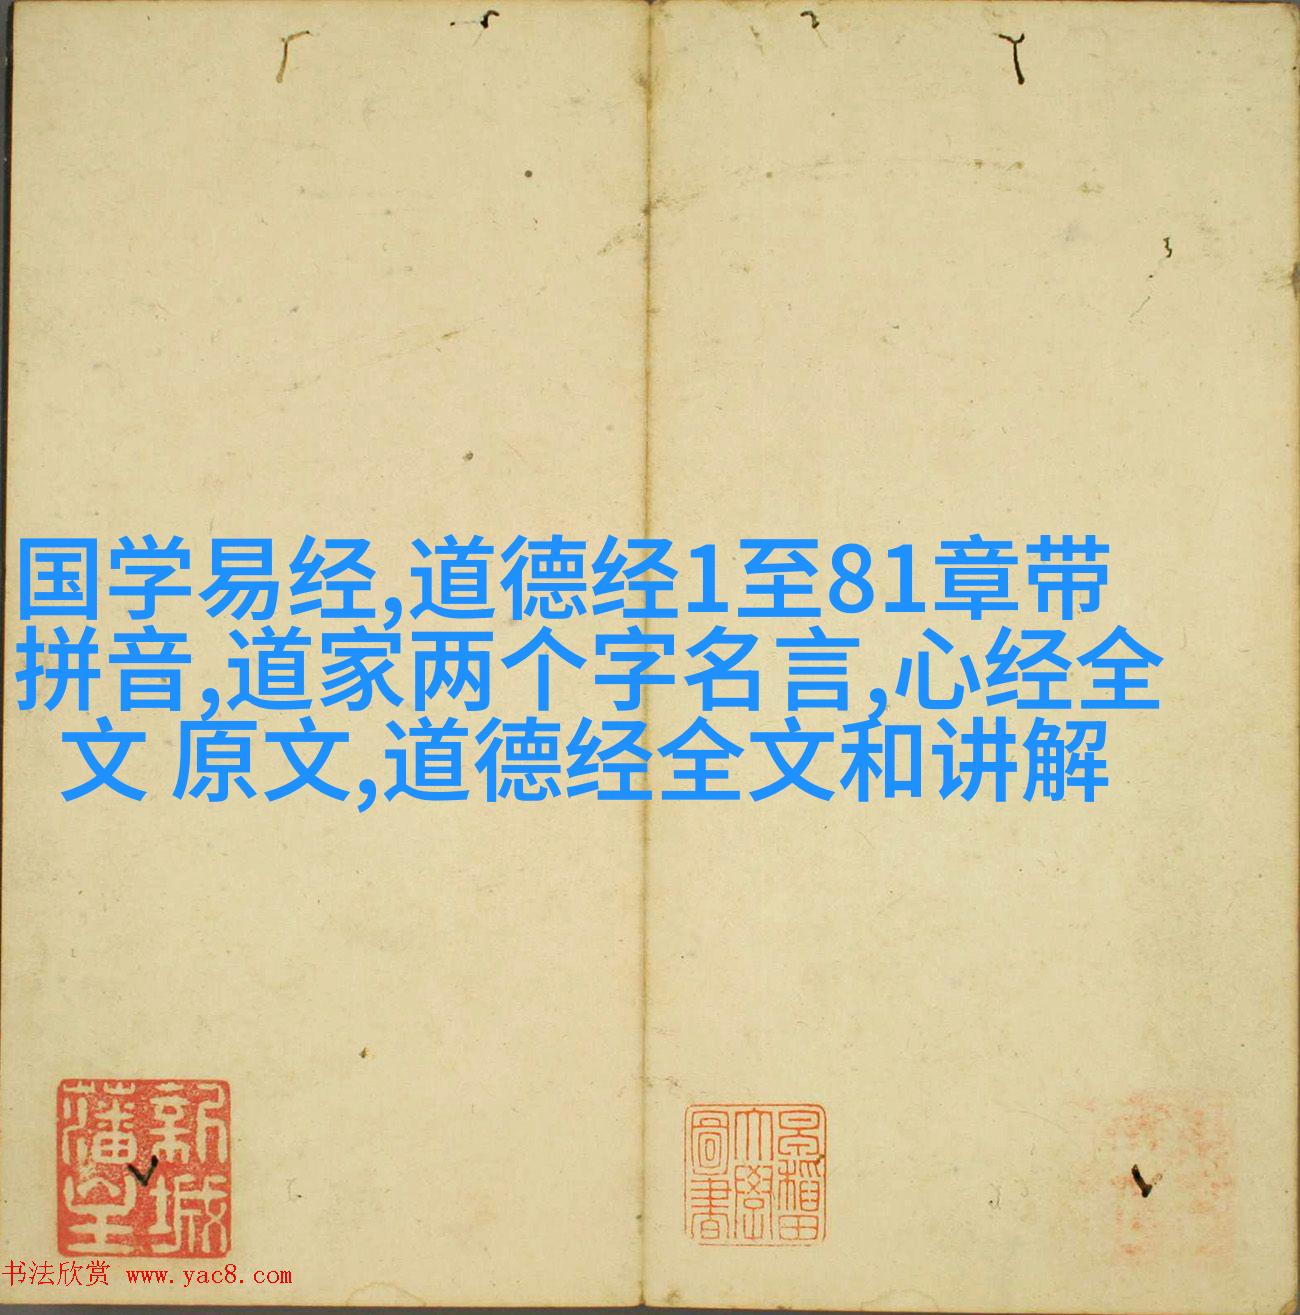 国学易经,道德经1至81章带
拼音,道家两个字名言,心经全
文 原文,道德经全文和讲解
新城
藩室
早稲田
大學
圖書
书法欣赏 www.yac8.com